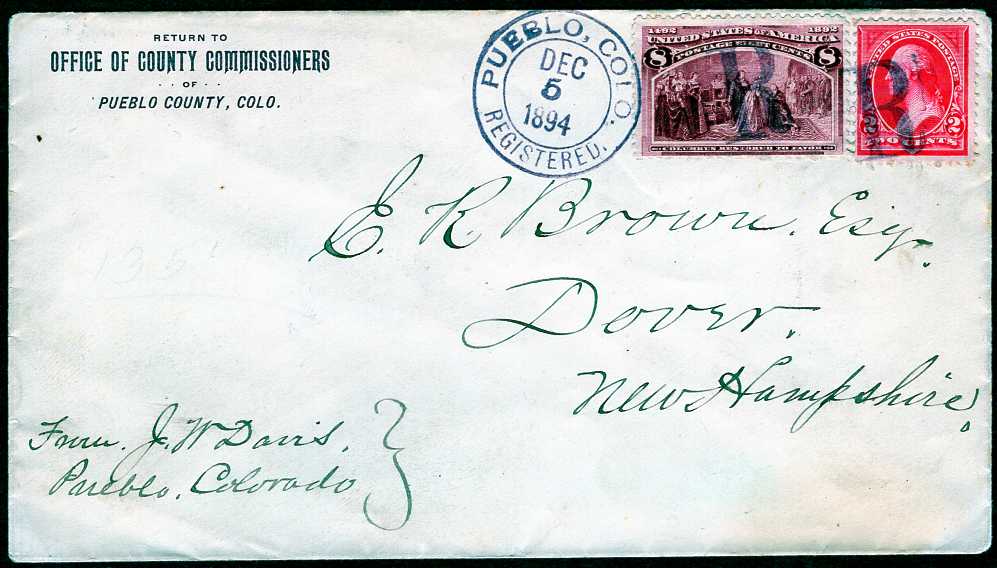 RETURN TO
OFFICE OF COUNTY COMMISSIONERS
OF
PUEBLO COUNTY, COLO.
PUEBLO, COLO.
DEC
5
1894
REGISTERED.
1492 1892
UNITED STATES OF AMERICA
POSTAGE EIGHT CENTS
8 8
R
COLUMBUS RESTORED TO FAVOR
UNITED STATES POSTAGE
R
2 2
TWO CENTS
E. R. Brown. Esq.
Dover.
New Hampshire,
From. J. W Davis,
Pueblo, Colorado